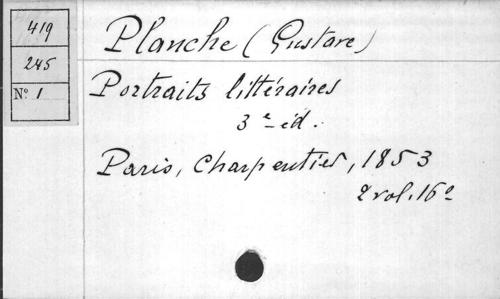 419
245
Nº 1
Planche (Gustave)
Portraits littéraires
3e éd.
Paris, Charpentier, 1853
2 vol. 16º